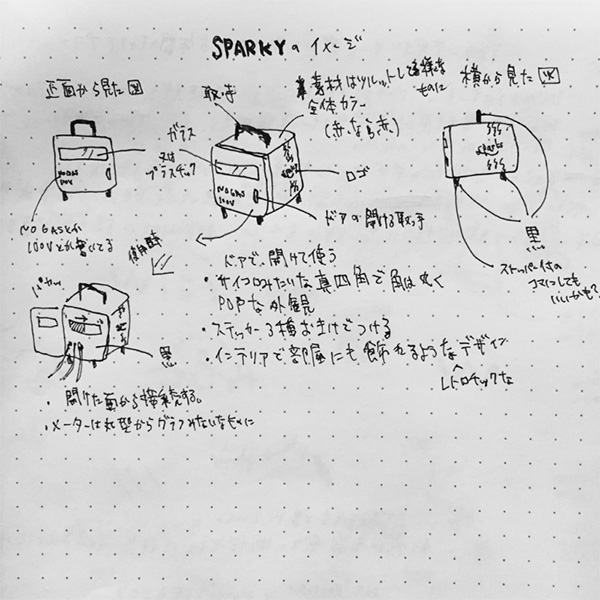 SPARKYのイメージ
正面から見た図
取っ手
素材はツルッとしてる様なものに
全体カラー
(赤なら赤)
横から見た図
ガラス
又は
プラスチック
NO GAS
100V
NO GAS
100V
sparky
ロゴ
ドアの開ける取っ手
NO GASとか
100Vとか書いてる
黒
ストッパー付の
コマにしても
いいかも?
使用時
ドアで、開けて使う
・サイコロみたいな真四角で角は丸く
POPな外観
・ステッカー3種おまけでつける
・インテリアで部屋にも飾れるようなデザイン
レトロチックな
パカッ
黒
・開けた面から接続する。
・メーターは丸型からグラフみたいなものに